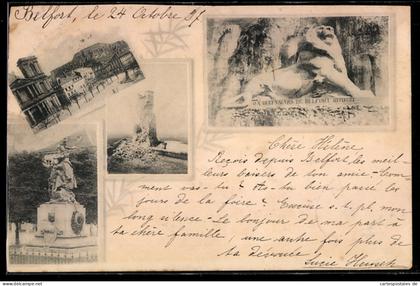 Belfort, le 24 Octobre 97
AUX DEFENSEURS DE BELFORT
Chère Hélène
Reçois depuis Belfort les meil-
leurs baisers de ton amie - Com-
ment vas-tu ? As-tu bien passé les
jours de la foire ? Excuse s.t.pl. mon
long silence - Le bonjour de ma part à
ta chère famille une autre fois plus de
ta dévouée Lucie
www.cartespostales.de